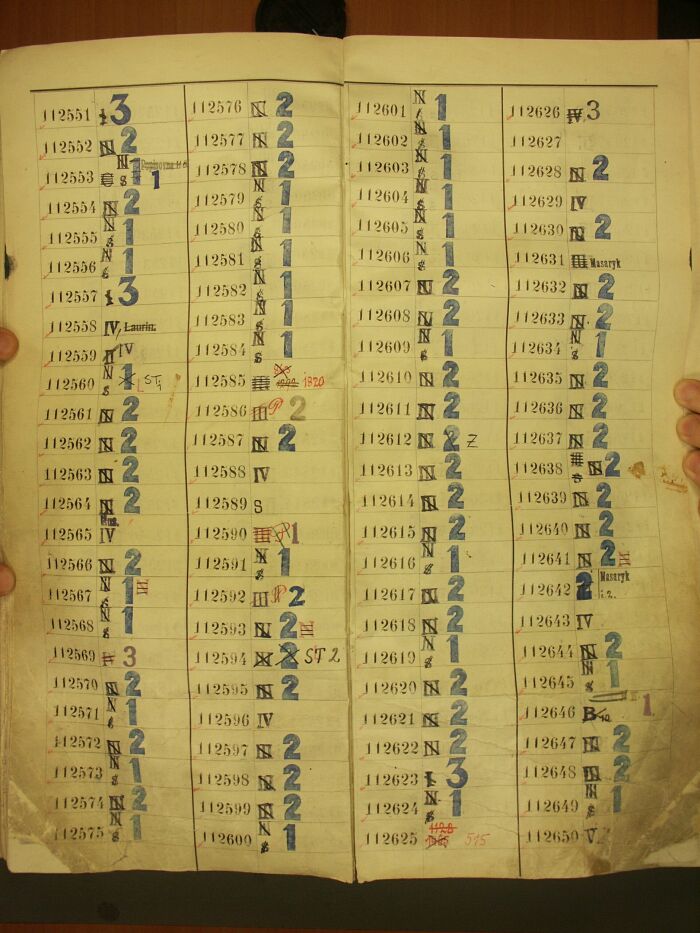 112551 1 3
112552 N 2
112553 N s 1 1
112554 N 2
112555 N s 1
112556 N s 1
112557 1 3
112558 IV Laurin.
112559 II IV
112560 N s 1 ST1
112561 N 2
112562 N 2
112563 N 2
112564 N 2
112565 Rus. IV
112566 N 2
112567 N s 1 III
112568 N s 1
112569 IV 3
112570 N 2
112571 N s 1
112572 N 2
112573 N s 1
112574 N 2
112575 N s 1
112576 N 2
112577 N 2
112578 N 2
112579 N s 1
112580 N s 1
112581 N s 1
112582 N s 1
112583 N s 1
112584 N s 1
112585 1820
112586 III P 2
112587 N 2
112588 IV
112589 S
112590 P 1
112591 N s 1
112592 III P 2
112593 N 2 III
112594 N 2 ST 2
112595 N 2
112596 IV
112597 N 2
112598 N 2
112599 N 2
112600 N s 1
112601 N s 1
112602 N s 1
112603 N s 1
112604 N s 1
112605 N s 1
112606 N s 1
112607 N 2
112608 N 2
112609 N s 1
112610 N 2
112611 N 2
112612 N 2 Z
112613 N 2
112614 N 2
112615 N 2
112616 N s 1
112617 N 2
112618 N 2
112619 N s 1
112620 N 2
112621 N 2
112622 N 2
112623 1 3
112624 N s 1
112625 515
112626 IV 3
112627
112628 N 2
112629 IV
112630 N 2
112631 Masaryk
112632 N 2
112633 N 2
112634 N s 1
112635 N 2
112636 N 2
112637 N 2
112638 s N 2
112639 N 2
112640 N 2
112641 N 2 III
112642 2 Masaryk
i.z.
112643 IV
112644 N 2
112645 N s 1
112646 B 1
112647 N 2
112648 N 2
112649 N s 1
112650 V